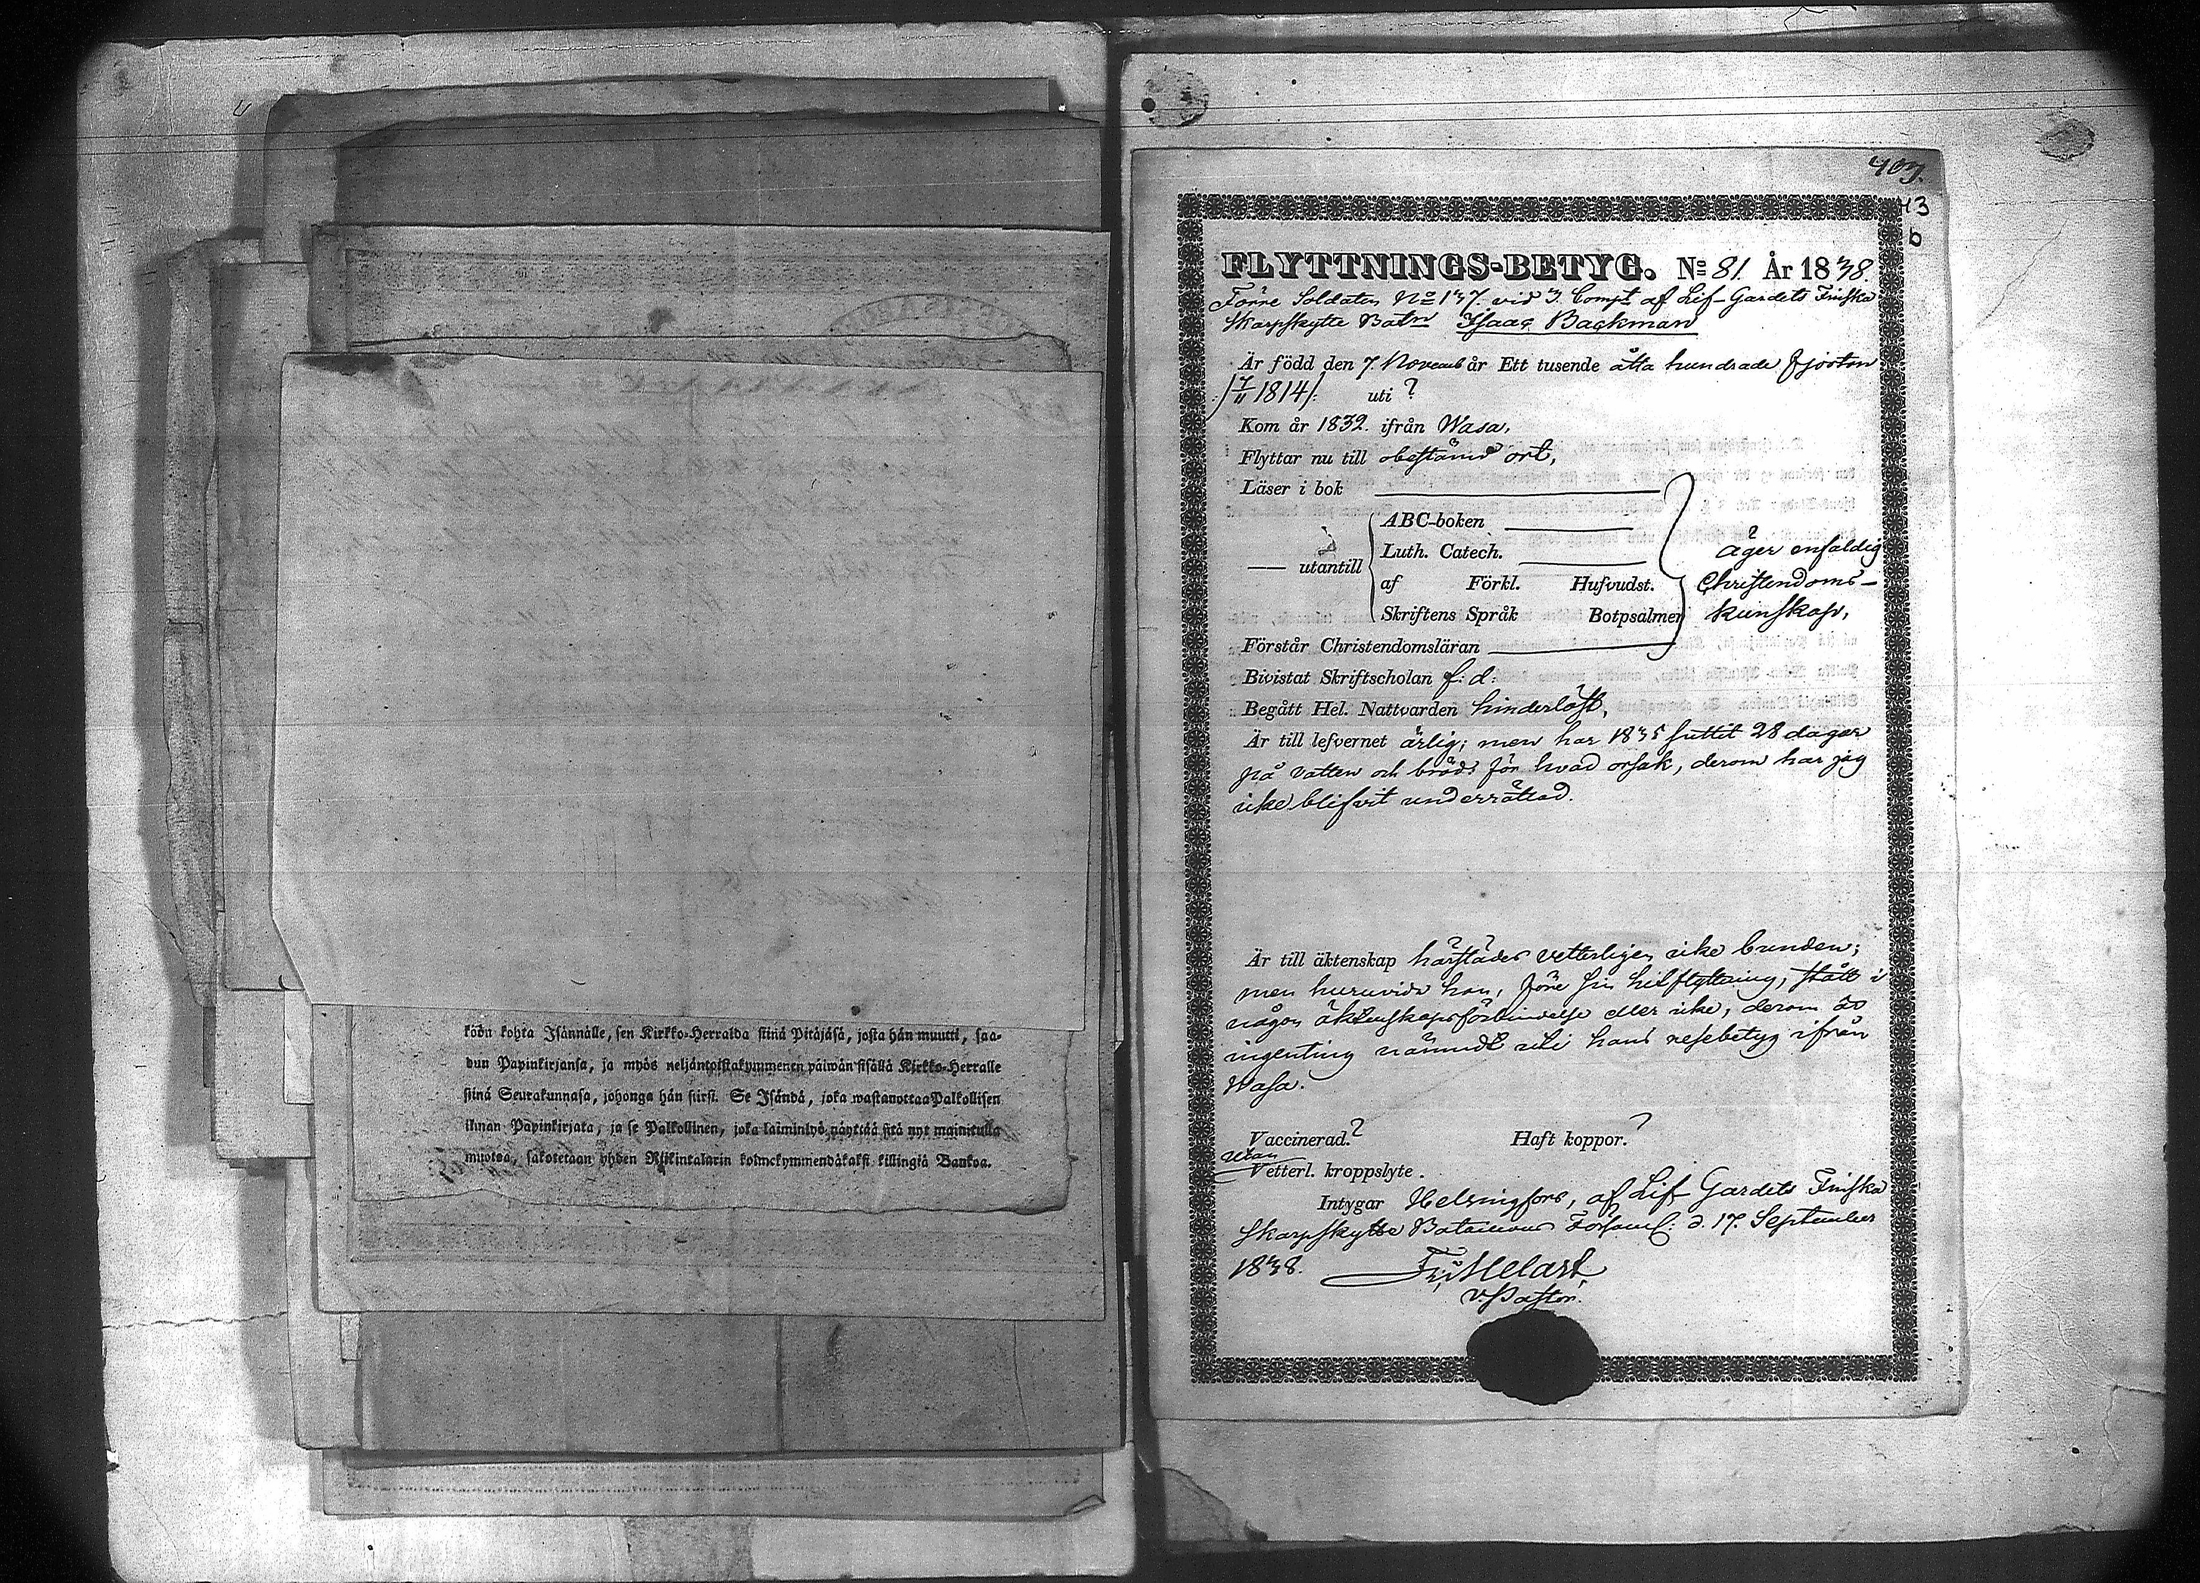 köön kohta Isännälle, sen Kirkko-Herralda siinä Pitäjäsä, josta hän muutti, saa-
dun Papinkirjansa, ja myös neljäntoistakymmenen päiwän sisällä Kirkko-Herralle
siinä Seurakunnasa, johonga hän siirsi. Se Isändä, joka wastanottaa Palkollisen
ilman Papinkirjata, ja se Palkollinen, joka laiminlyö näyttää sitä nyt mainitulla
muotoa, sakotetaan yhden Riikintalarin kolmekymmendäkaksi killingiä Bankoa.
403.
43
b
FLYTTNINGS-BETYG. No 81. År 1838.
Förre Soldaten No 137. vid 3. Compt af Lif-Gardets Finska
Skarpskytte Batn Isaac Backman
Är född den 7. Novemb år Ett tusende åtta hundrade fjorton
/: 7/11 1814 /: uti ?
Kom år 1832. ifrån Wasa,
Flyttar nu till obestämd ort,
Läser i bok
ABC-boken
utantill Luth. Catech. äger enfaldig
af Förkl. Hufvudst. Christendoms-
Skriftens Språk Botpsalmer kunskap,
Förstår Christendomsläran
Bivistat Skriftscholan f: d:
Begått Hel. Nattvarden hinderlöst,
Är till lefvernet ärlig; men har 1835 suttit 28 dagar
på vatten och bröd: för hvad orsak, derom har jag
icke blifvit underrättad.
Är till äktenskap härstädes vetterligen icke bunden;
men huruvida han, före sin hitflyttning, stått i
någon äktenskapsförbindelse eller icke, derom är
ingenting nämndt uti hans resebetyg ifrån
Wasa.
Vaccinerad. ? Haft koppor. ?
utan
Vetterl. kroppslyte.
Intygar Helsingfors, af Lif-Gardets Finska
Skarpskytte Bataillons Församl: d. 17. September
1838. Melart,
v. Pastor.